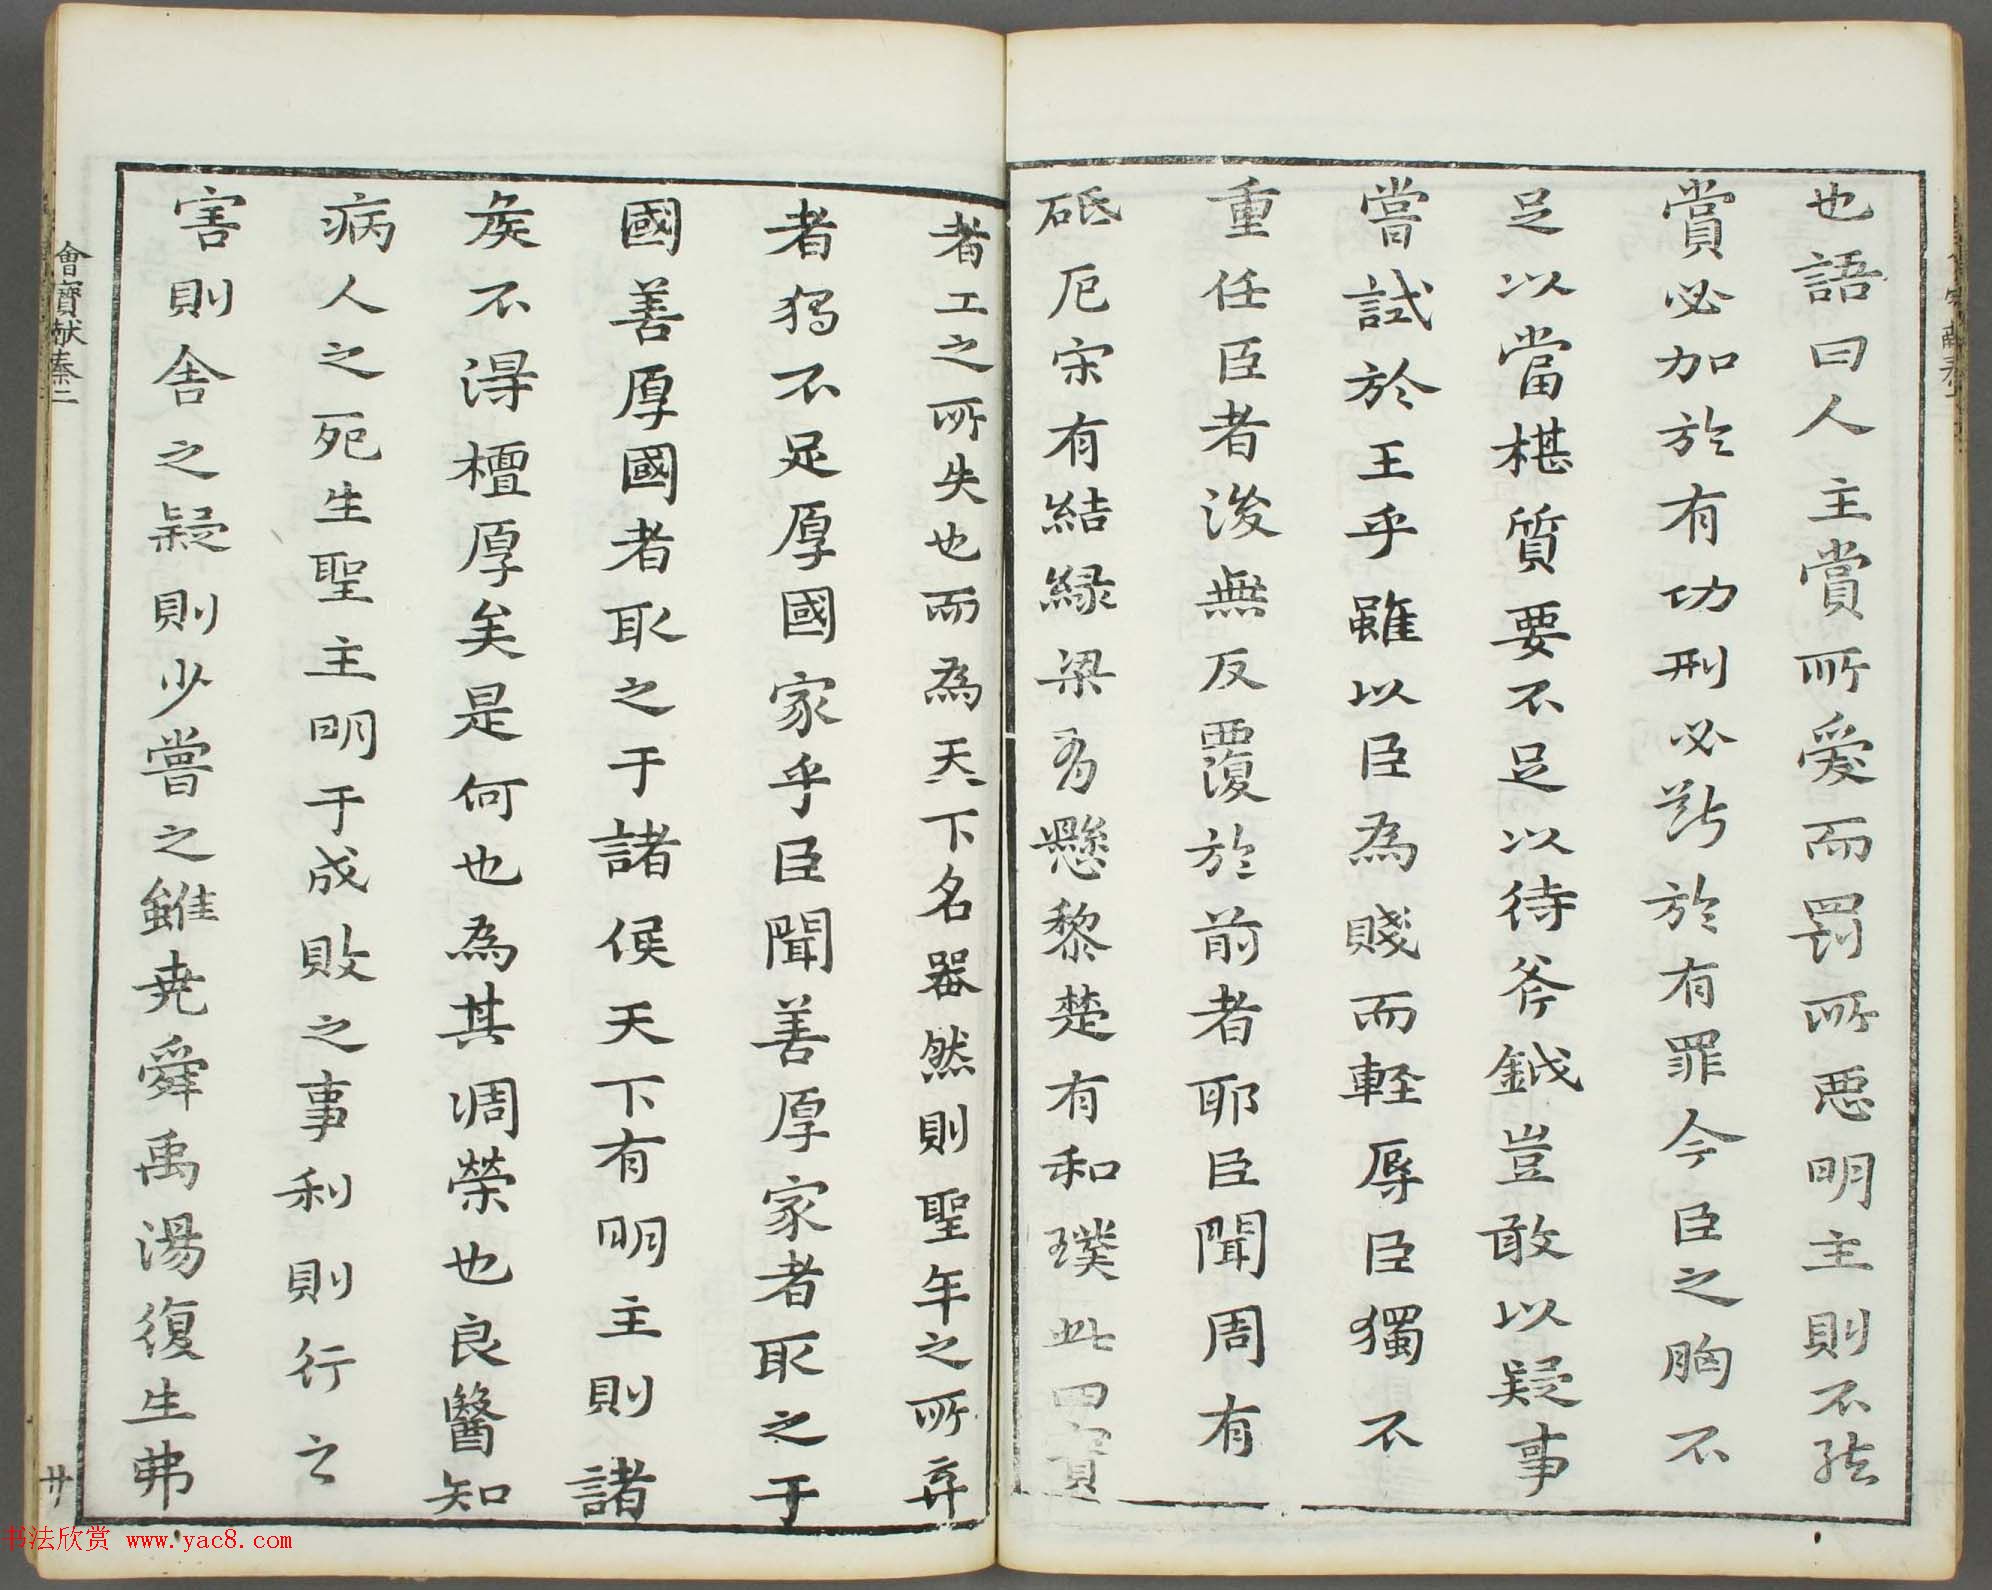 也語曰人主賞所愛而罰所惡明主則不然
賞必加於有功刑必斷於有罪今臣之胸不
足以當椹質要不足以待斧鉞豈敢以疑事
嘗試於王乎雖以臣為賤而輕辱臣獨不
重任臣者後無反覆於前者耶臣聞周有
砥厄宋有結緑梁有懸黎楚有和璞此四寶
者工之所失也而為天下名器然則聖王之所棄
者獨不足厚國家乎臣聞善厚家者取之于
國善厚國者取之于諸侯天下有明主則諸
矦不得擅厚矣是何也為其凋榮也良醫知
病人之死生聖主明于成敗之事利則行之
害則舍之疑則少嘗之雖尭舜禹湯復生弗
會寶献秦二
廾
书法欣赏 www.yac8.com